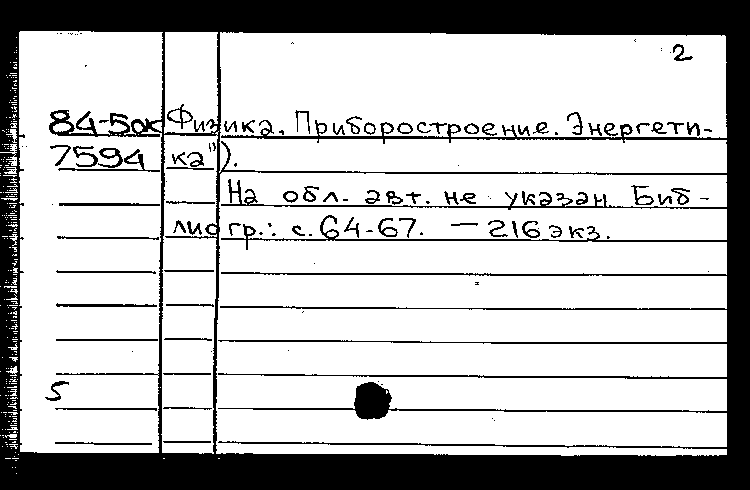 2
84-5ок Физика. Приборостроение. Энергети-
7594 ка").
На обл. авт. не указан. Биб-
лиогр.: с. 64-67. — 216 экз.
5